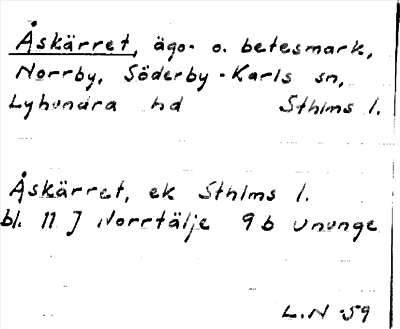 Åskärret, ägo- o. betesmark,
Norrby, Söderby-Karls sn,
Lyhundra hd Sthlms l.
Åskärret, ek Sthlms l.
bl. 11 J Norrtälje 9b Ununge
L.N -59